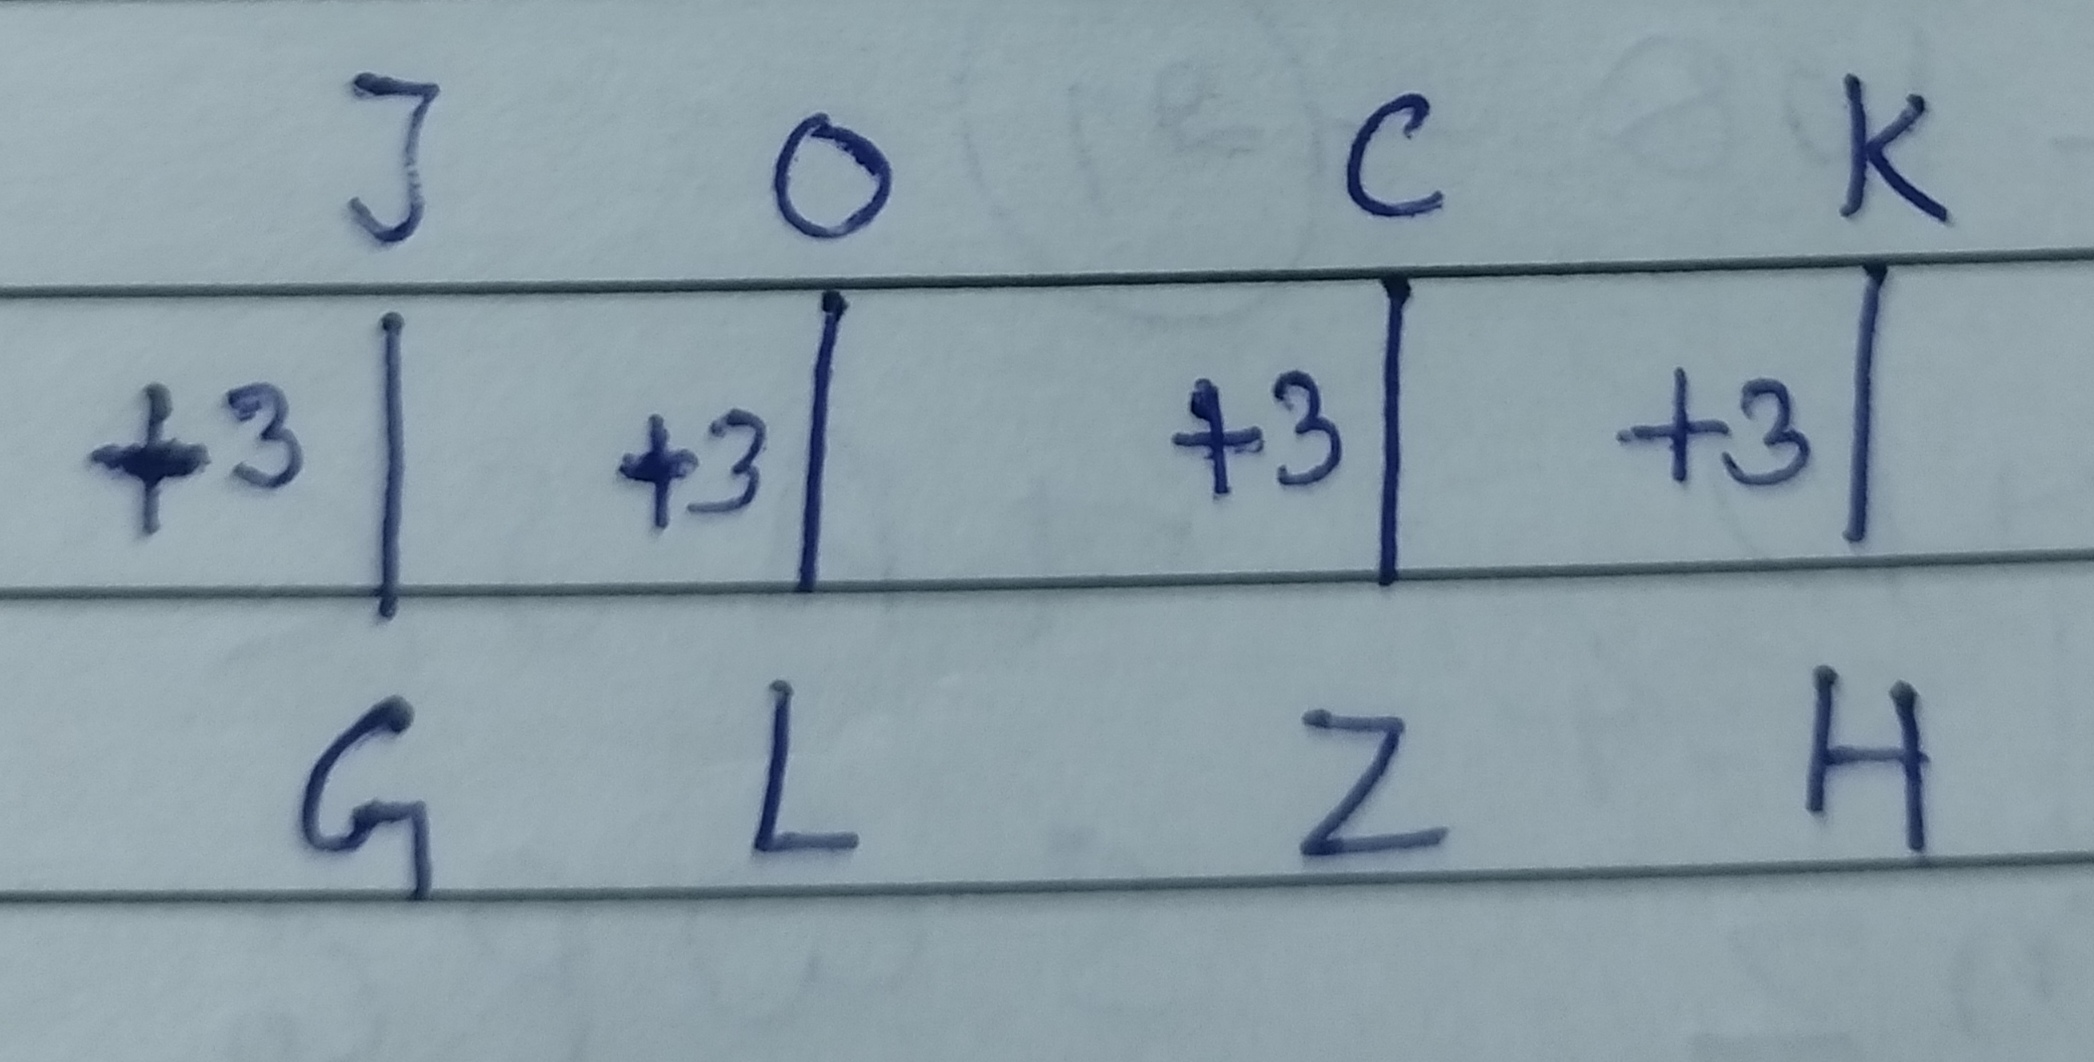 J O C K
+3 +3 +3 +3
G L Z H